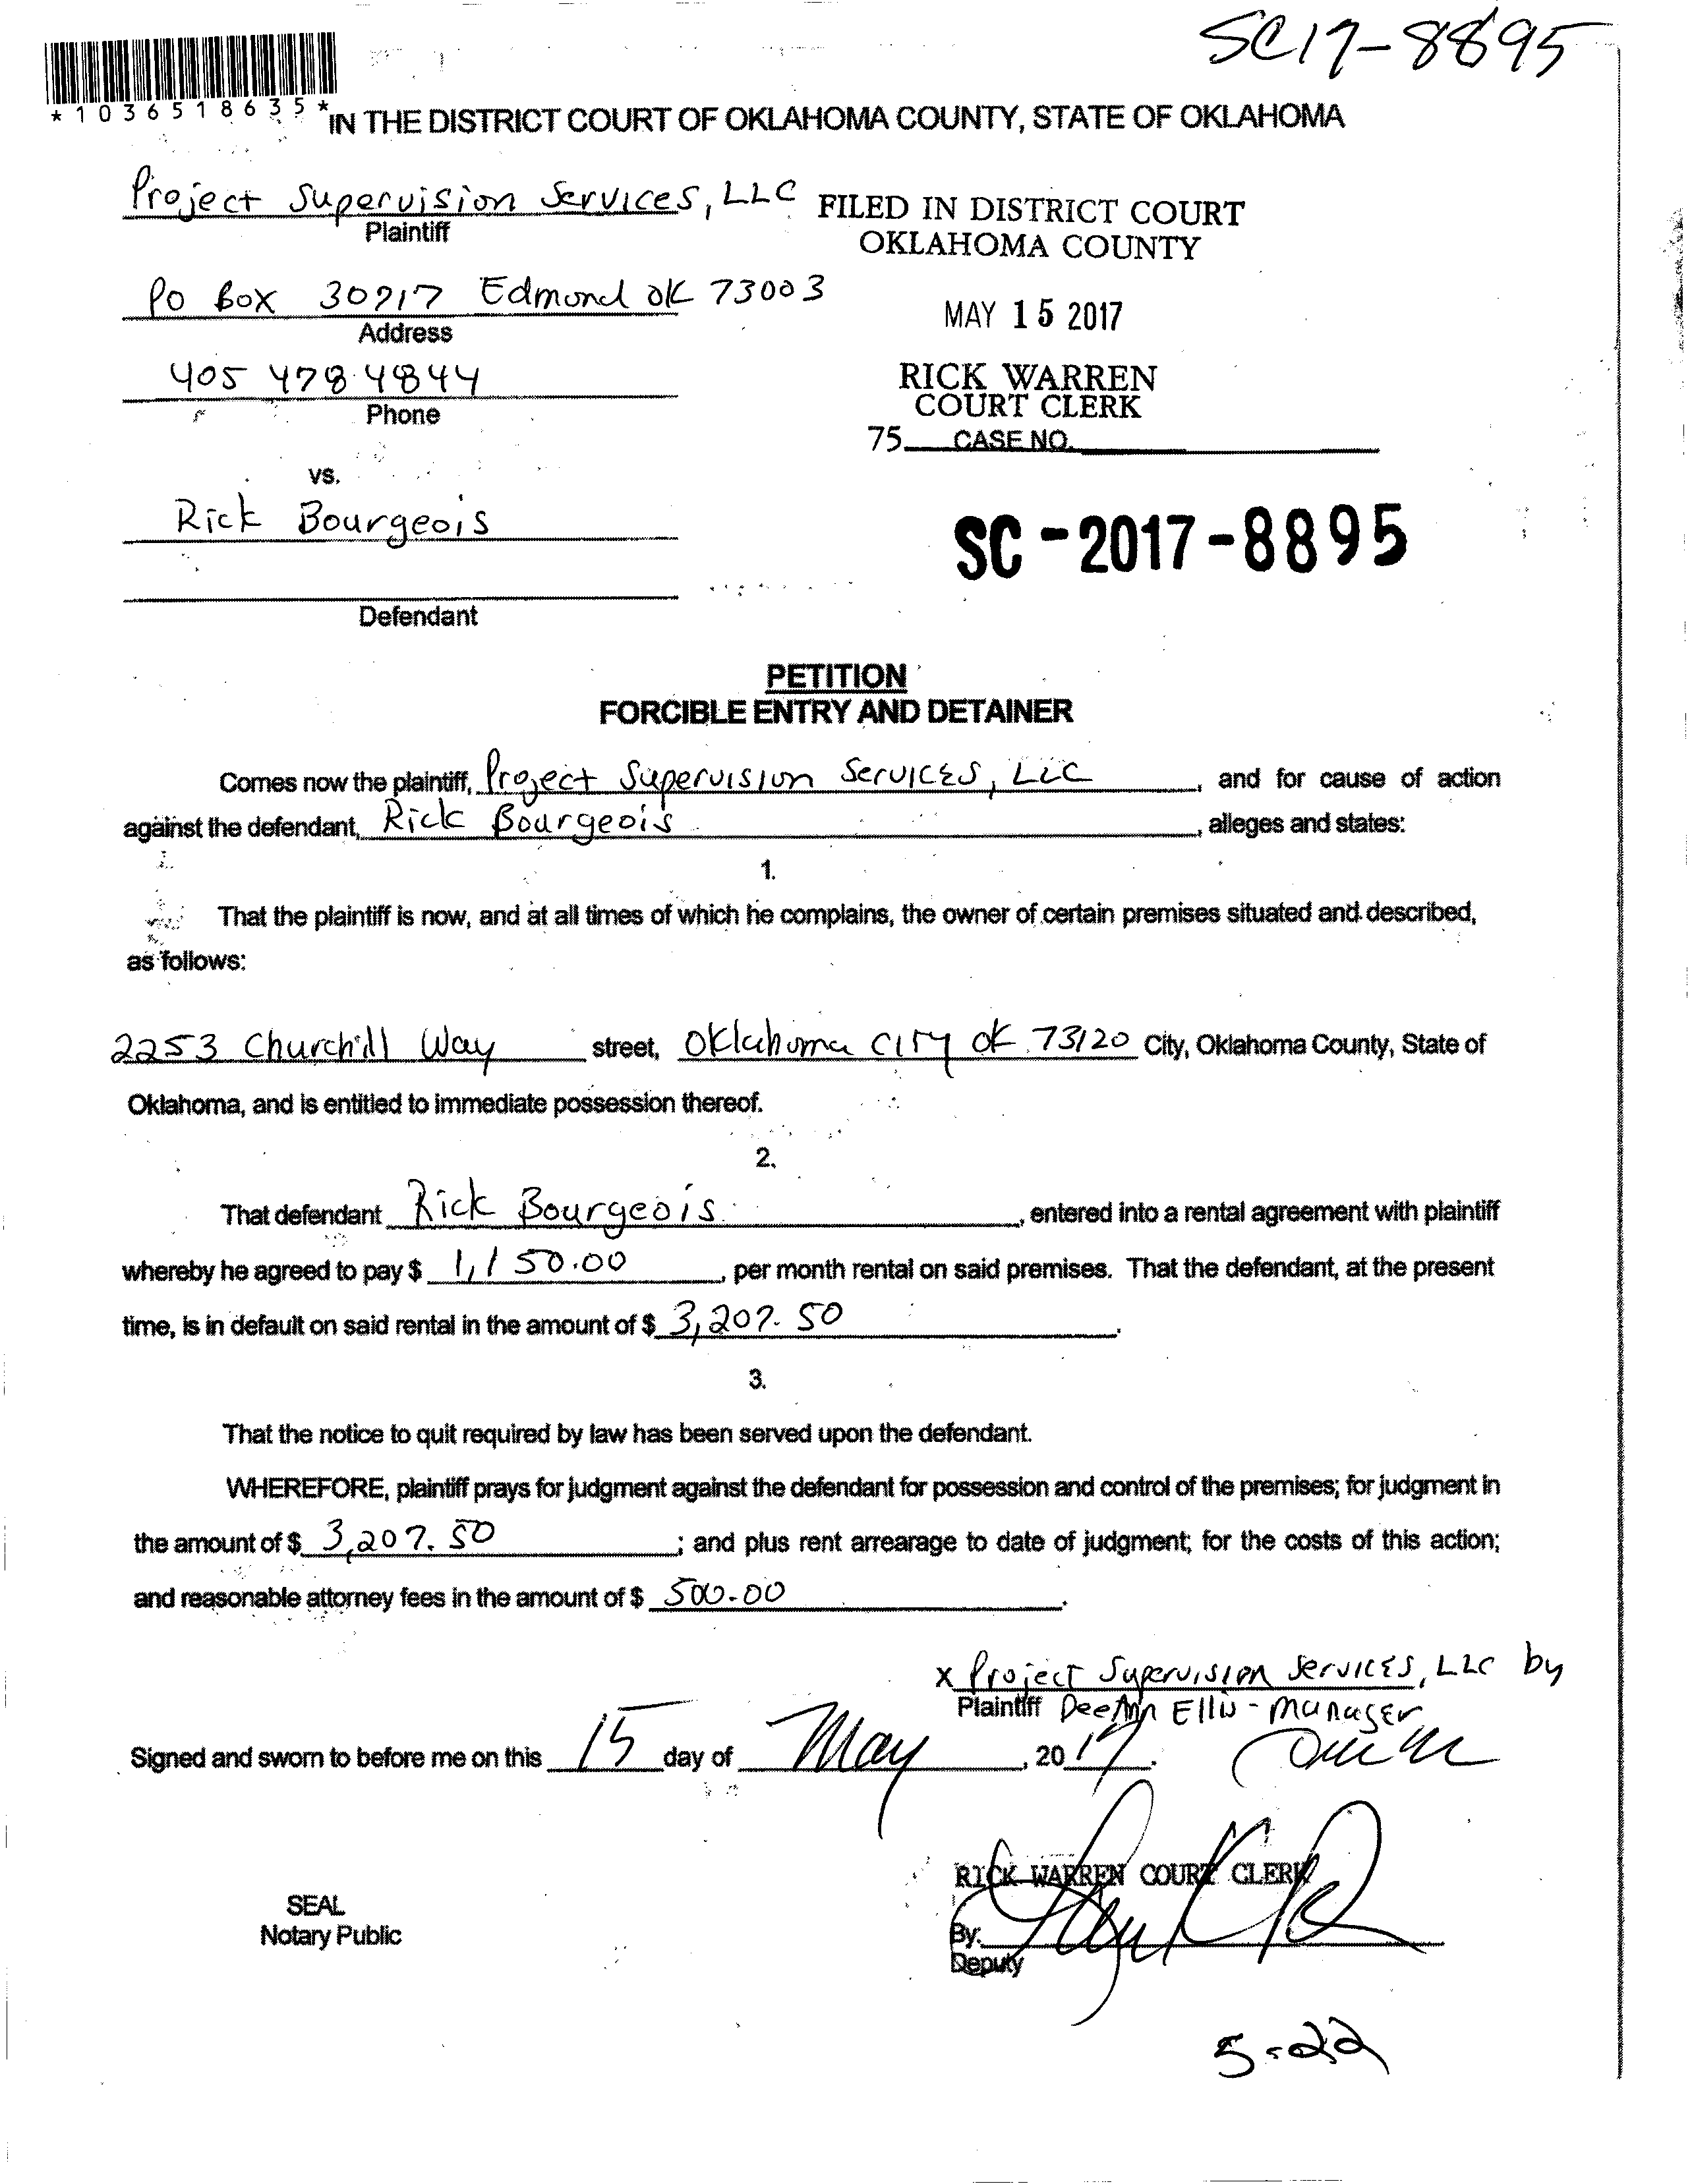 SC17-8895
*1036518635*
IN THE DISTRICT COURT OF OKLAHOMA COUNTY, STATE OF OKLAHOMA
Project Supervision Services, LLC
Plaintiff
FILED IN DISTRICT COURT
OKLAHOMA COUNTY
PO Box 30917 Edmond OK 73003
Address
MAY 15 2017
405 478 4844
Phone
RICK WARREN
COURT CLERK
75 CASE NO.
vs.
Rick Bourgeois
SC-2017-8895
Defendant
PETITION
FORCIBLE ENTRY AND DETAINER
Comes now the plaintiff, Project Supervision Services, LLC, and for cause of action
against the defendant, Rick Bourgeois, alleges and states:
1.
That the plaintiff is now, and at all times of which he complains, the owner of certain premises situated and described,
as follows:
2253 Churchill Way street, Oklahoma City OK 73120 City, Oklahoma County, State of
Oklahoma, and is entitled to immediate possession thereof.
2.
That defendant Rick Bourgeois, entered into a rental agreement with plaintiff
whereby he agreed to pay $ 1,150.00, per month rental on said premises. That the defendant, at the present
time, is in default on said rental in the amount of $ 3,207.50.
3.
That the notice to quit required by law has been served upon the defendant.
WHEREFORE, plaintiff prays for judgment against the defendant for possession and control of the premises; for judgment in
the amount of $ 3,207.50; and plus rent arrearage to date of judgment; for the costs of this action;
and reasonable attorney fees in the amount of $ 500.00.
x Project Supervision Services, LLC by
Plaintiff DeeAnn Ellis - Manager
Signed and sworn to before me on this 15 day of May, 2017.
RICK WARREN COURT CLERK
SEAL
Notary Public
By:
Deputy
5-22